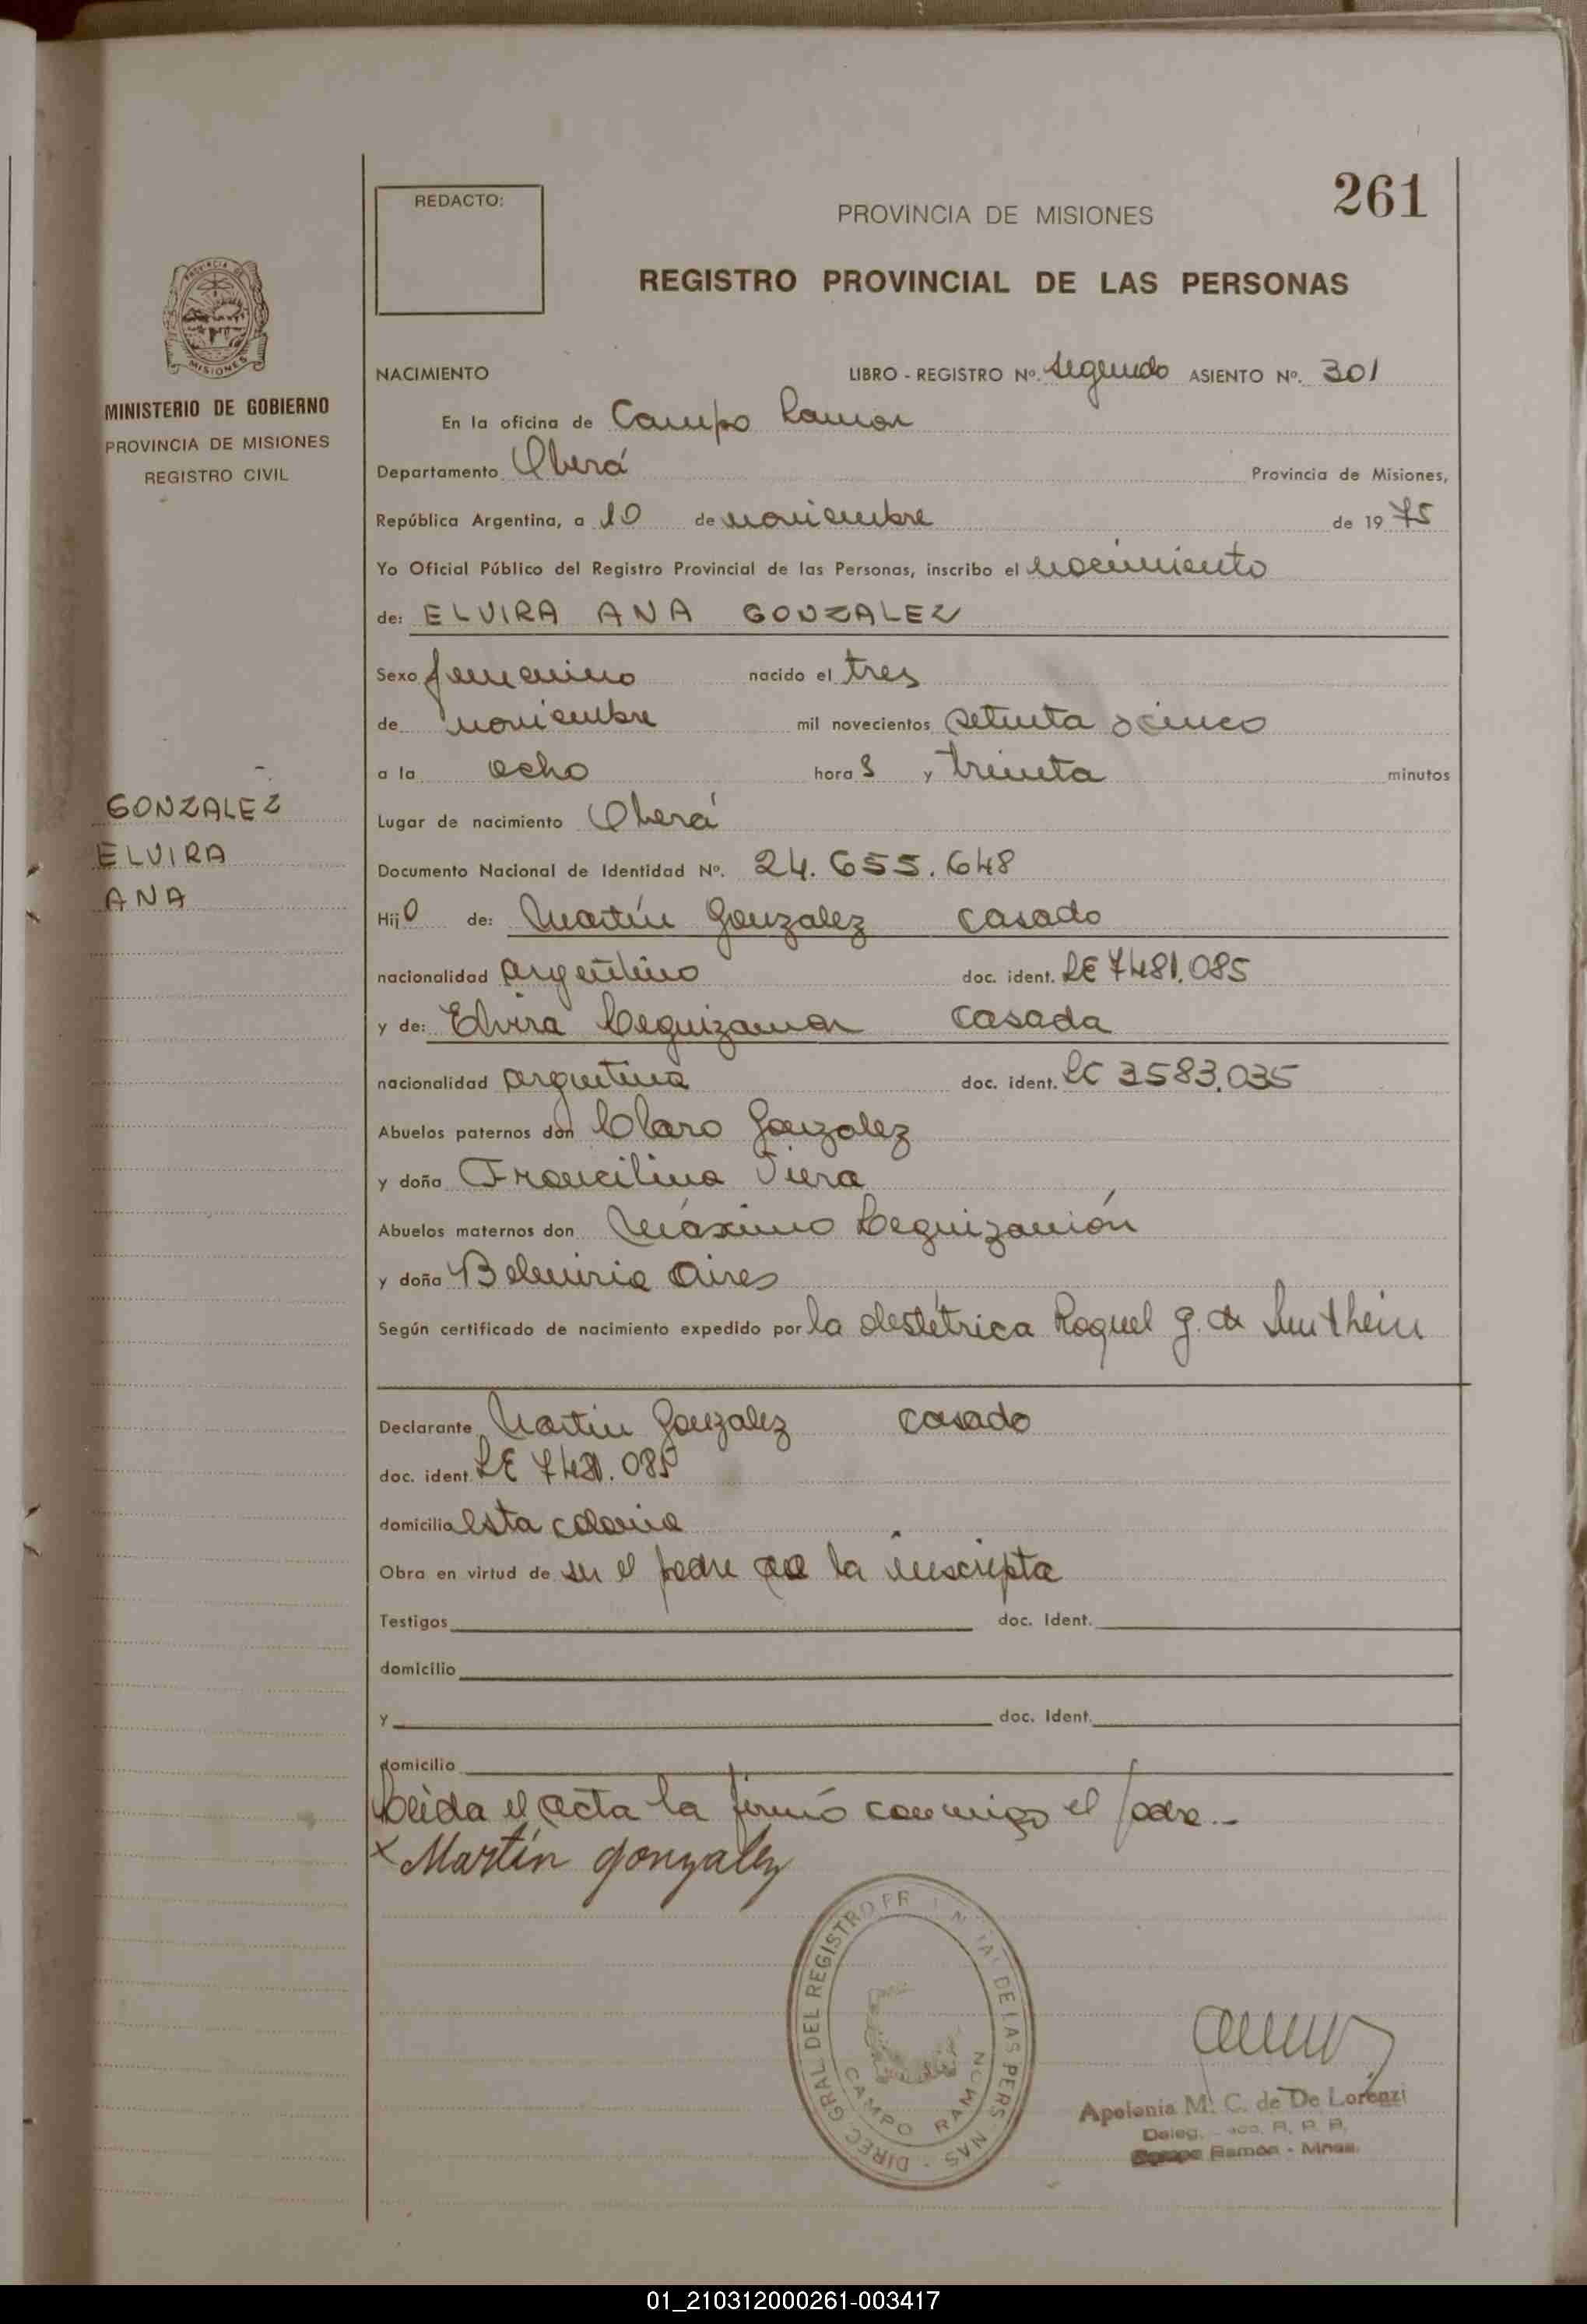 261
REDACTO:
PROVINCIA DE MISIONES
REGISTRO PROVINCIAL DE LAS PERSONAS
PROVINCIA DE
MISIONES
MINISTERIO DE GOBIERNO
PROVINCIA DE MISIONES
REGISTRO CIVIL
GONZALEZ
ELVIRA
ANA
NACIMIENTO LIBRO - REGISTRO Nº. segundo ASIENTO Nº. 301
En la oficina de Campo Ramon
Departamento Oberá Provincia de Misiones,
República Argentina, a 10 de noviembre de 1975
Yo Oficial Público del Registro Provincial de las Personas, inscribo el nacimiento
de: ELVIRA ANA GONZALEZ
Sexo femenino nacido el tres
de noviembre mil novecientos setenta y cinco
a la ocho hora s y treinta minutos
Lugar de nacimiento Oberá
Documento Nacional de Identidad Nº. 24.655.648
Hijo de: Martín Gonzalez casado
nacionalidad argentino doc. ident. LE 7481.085
y de: Elvira Leguizamon casada
nacionalidad argentina doc. ident. LC 3583.035
Abuelos paternos don Claro Gonzalez
y doña Francilina Viera
Abuelos maternos don Máximo Leguizamón
y doña Belmiria Aires
Según certificado de nacimiento expedido por la obstétrica Raquel G. de
Declarante Martin Gonzalez casado
doc. ident. LE 7481.085
domicilio esta colonia
Obra en virtud de ser el padre de la inscripta
Testigos doc. Ident.
domicilio
y doc. Ident.
domicilio
Leida el acta la firmó conmigo el padre.-
x Martín gonzalez
DIREC. GRAL DEL REGISTRO DE LAS PERSONAS
CAMPO RAMON
Apolonia M. C. de De Lorenzi
Deleg. R. P. P.
Campo Ramón - Mnes.
01_210312000261-003417